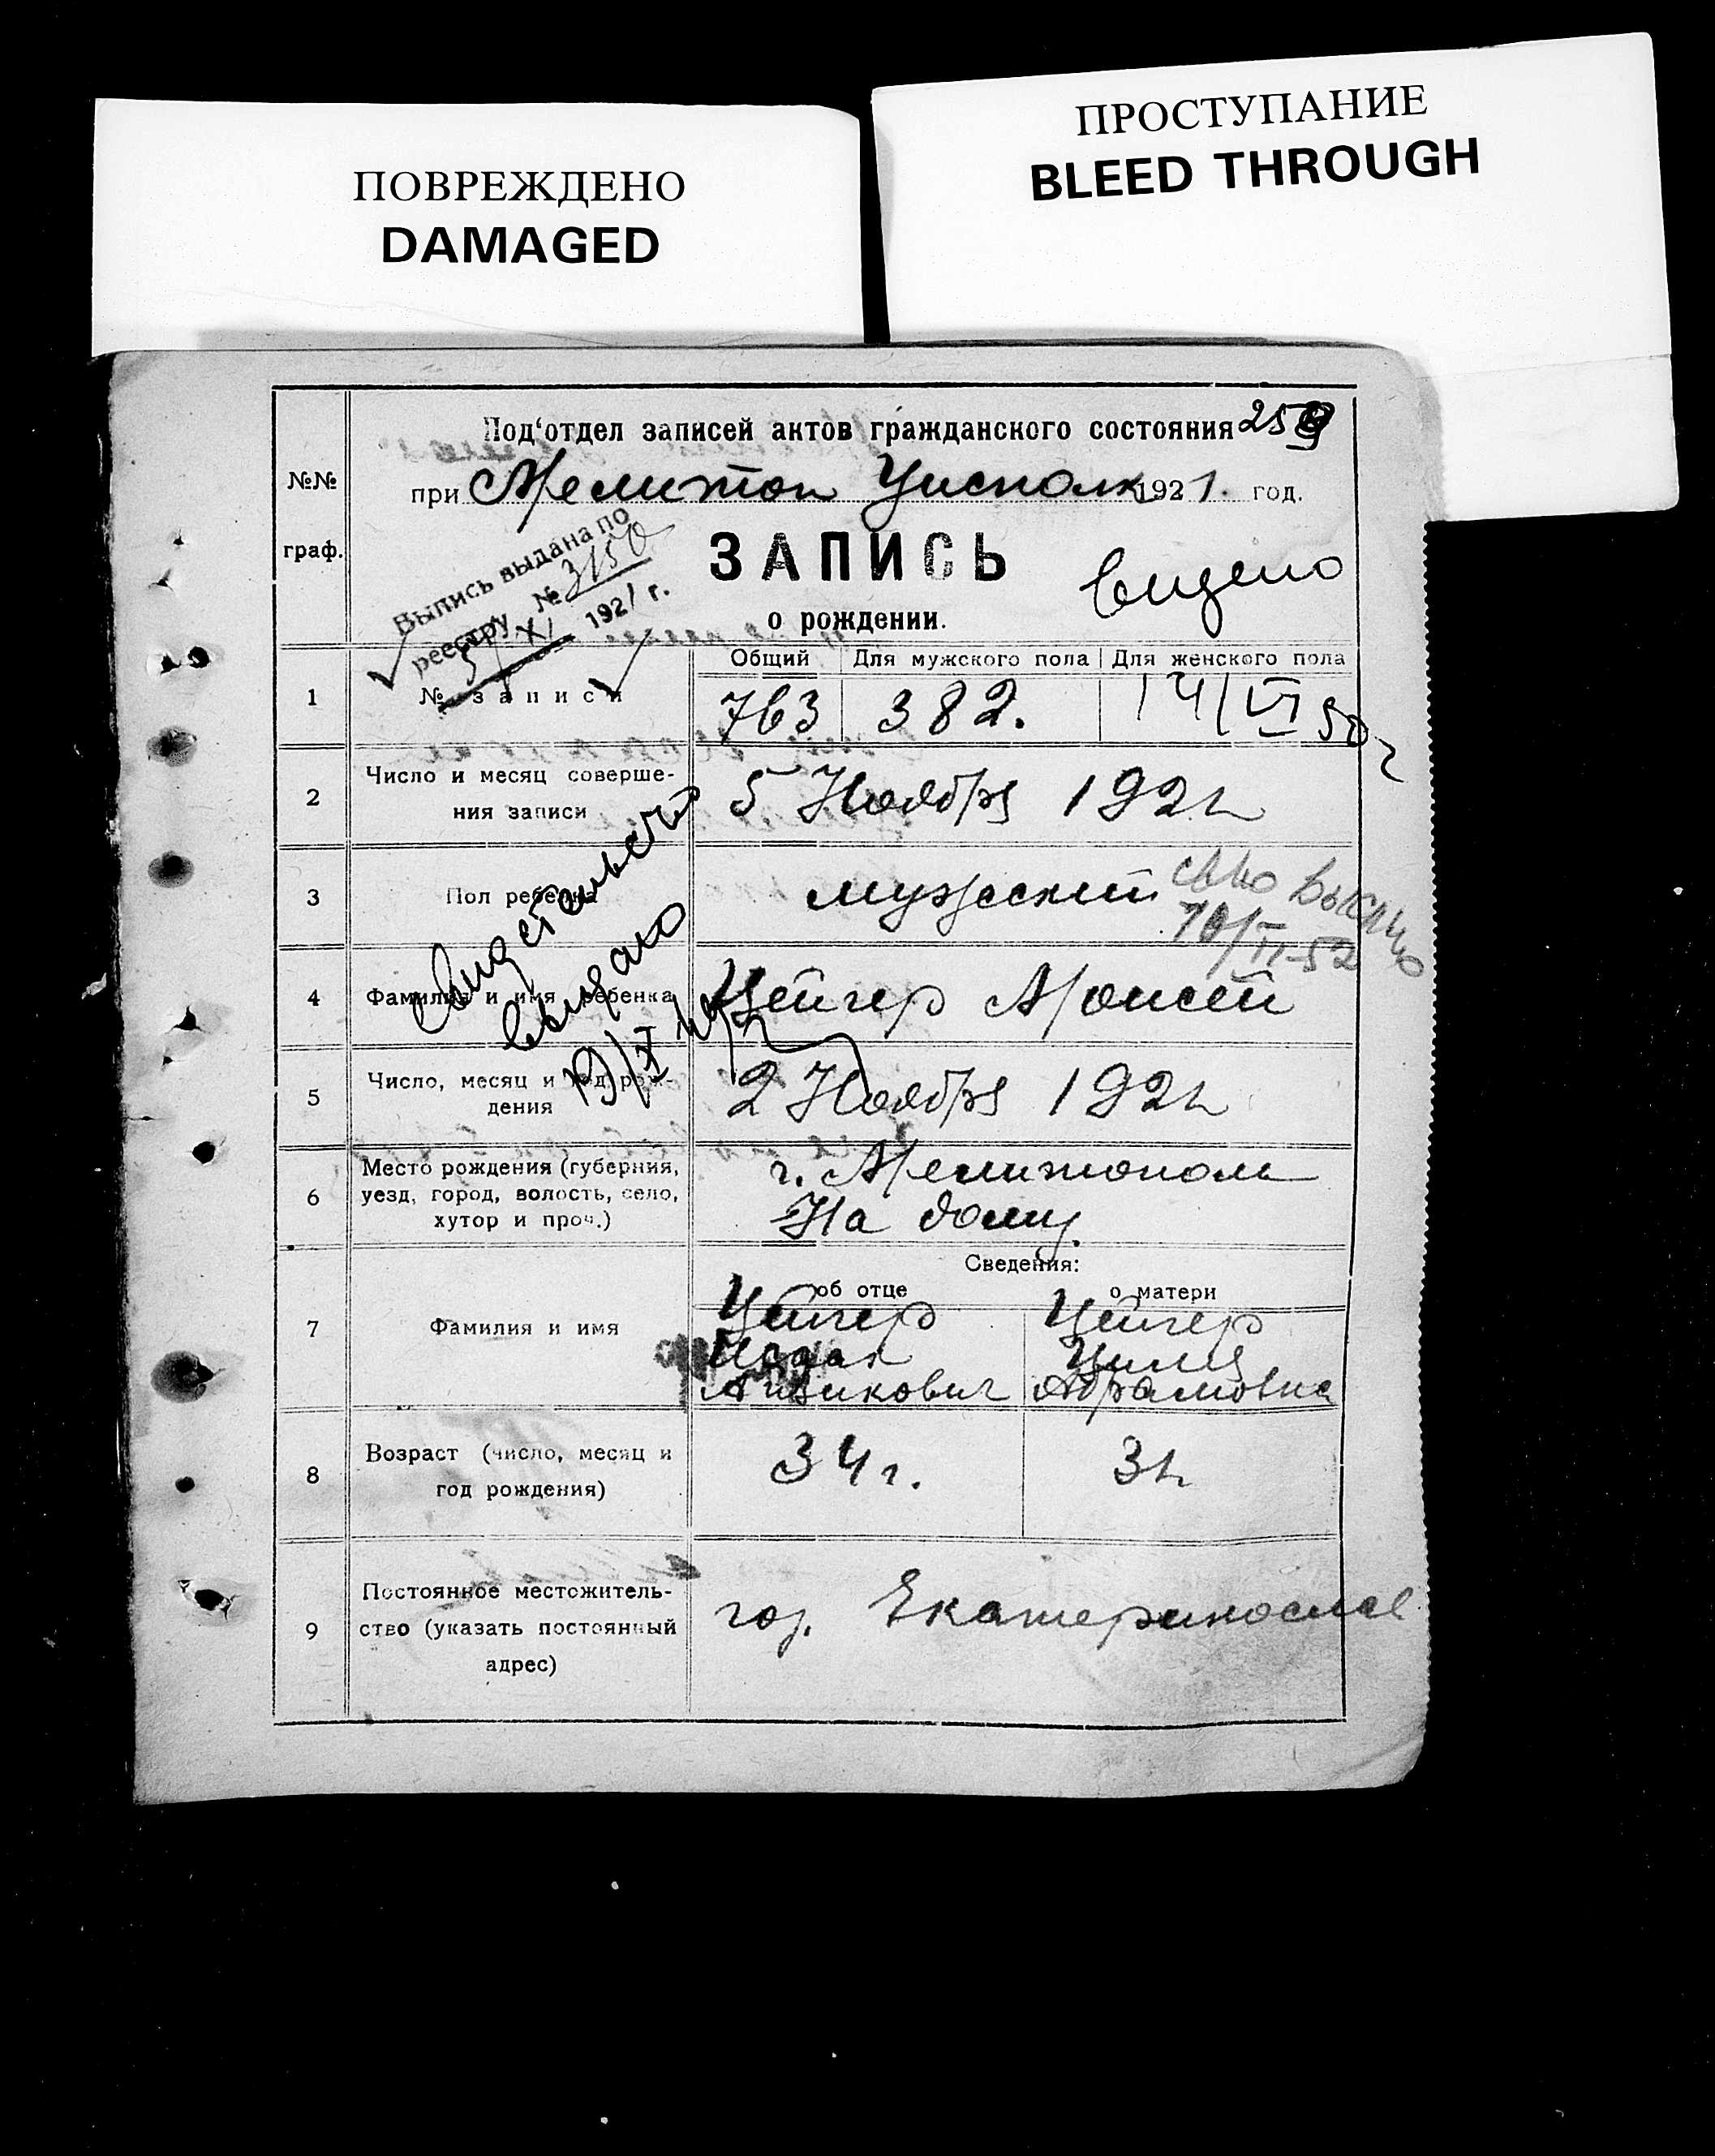 ПОВРЕЖДЕНО
DAMAGED
ПРОСТУПАНИЕ
BLEED THROUGH
Под‘отдел записей актов гражданского состояния 259
при Мелитоп Уисполк 1921. год.
№№
граф.
ЗАПИСЬ
о рождении.
Выпись выдана по
реестру № 3150
5/XI 1921 г.
Общий Для мужского пола Для женского пола
1 № записи 763 382. 14/VI 50 г
2 Число и месяц соверше-
ния записи
5 Ноября 1921
3 Пол ребенка мужеский
10/II-52
Свидетельство
выдано
4 Фамилия и имя ребенка Цейгер Моисей
5 Число, месяц и год рож-
дения
2 Ноября 1921
6 Место рождения (губерния,
уезд, город, волость, село,
хутор и проч.)
г. Мелитополь
На дому
Сведения:
об отце о матери
7 Фамилия и имя
Цейгер
Айзикович
Цейгер
Циля
Абрамовна
8 Возраст (число, месяц и
год рождения)
34 г.
9 Постоянное местожитель-
ство (указать постоянный
адрес)
гор. Екатеринослав